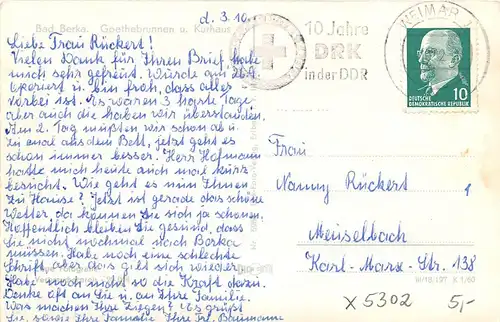 d. 3.10.
Bad Berka. Goethebrunnen u. Kurhaus
Liebe Frau Rückert!
Vielen Dank für Ihren Brief, habe
mich sehr gefreut. Wurde am 26.9.
operiert u. bin froh, dass alles
vorbei ist. Es waren 3 harte Tage
aber auch die haben wir überstanden.
Am 2. Tag mußten wir schon ab u.
zu mal aus dem Bett, jetzt geht es
schon immer besser. Herr Hofmann
hatte mich heute auch mal kurz
besucht. Wie geht es nun Ihnen
zu Hause? Jetzt ist gerade das schöne
Wetter, da können Sie sich ja schonen.
Hoffentlich bleiben Sie gesund, dass
Sie nicht nochmal nach Berka
müssen. Habe noch eine schlechte
Schrift aber das gibt sich wieder.
Habe noch nicht so die Kraft dazu.
Denke oft an Sie u. an Ihre Familie.
Was machen Ihre Ziegen? Es grüßt
Sie, sowie Ihre Familie Ihre Frl. Baumann
10 Jahre
DRK
in der DDR
WEIMAR
10
DEUTSCHE
DEMOKRATISCHE REPUBLIK
Frau
Nanny Rückert
Meuselbach
Karl-Marx-Str. 138
III/18/197 K 1/60
x 5302 5,-